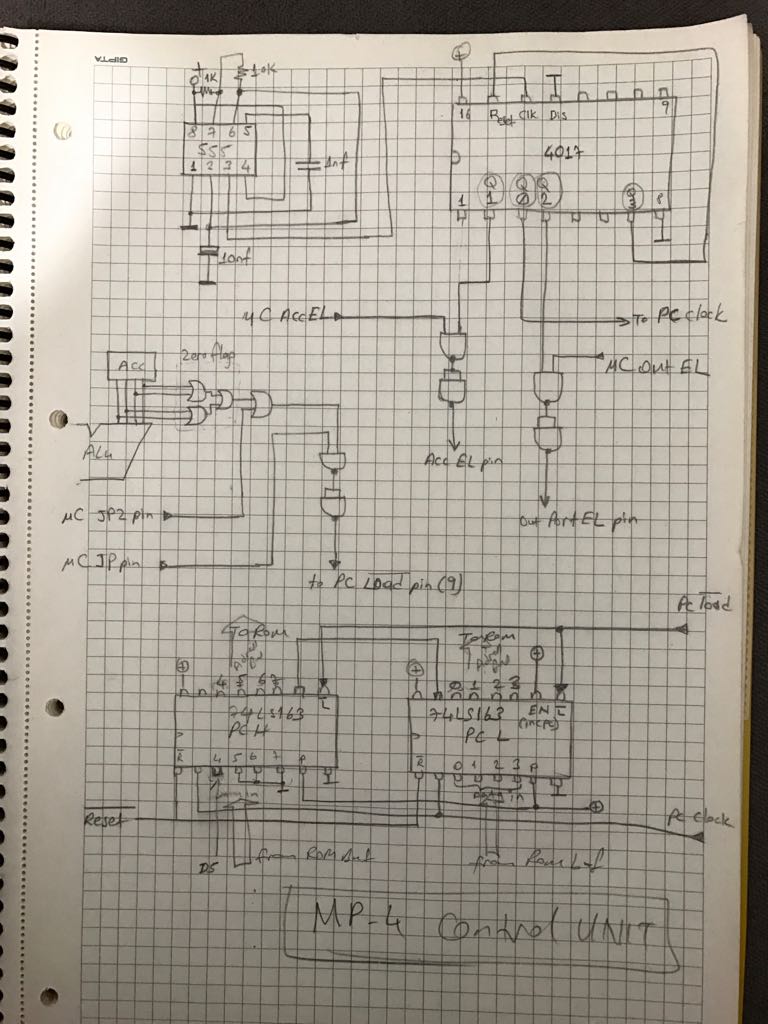 GIPTA
+
1K
10K
8 7 6 5
555
1 2 3 4
1nf
10nf
+
16 Reset Clk Dis 9
4017
1 Q1 Q0 Q2 Q3 8
µC AccEL
To PC clock
µC Out EL
Acc EL pin
Out Port EL pin
Acc
Zero flag
ALU
µC JPZ pin
µC JP pin
to PC LOad pin (9)
PC load
To ROM
4 5 6 7
L
74LS163
PC H
R 4 5 6 7 P
To ROM
0 1 2 3
EN L
(incpc)
74LS163
PC L
R 0 1 2 3 P
Data in
Reset
PC clock
D5
from ROM Out
from ROM
MP-4 Control UNIT